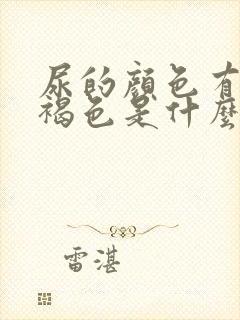 尿的顏色有
褐色是什麼
雷湛